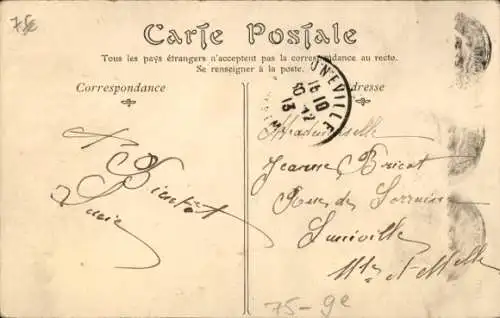 75c
Carte Postale
Tous les pays étrangers n'acceptent pas la correspondance au recto.
Se renseigner à la poste.
Correspondance
Adresse
UNÉVILLE
15 10
12
13
A Bientôt
Mademoiselle
Jeanne Bricot
Rue de Lorraine
Lunéville
Mthe et Melle
75-9e